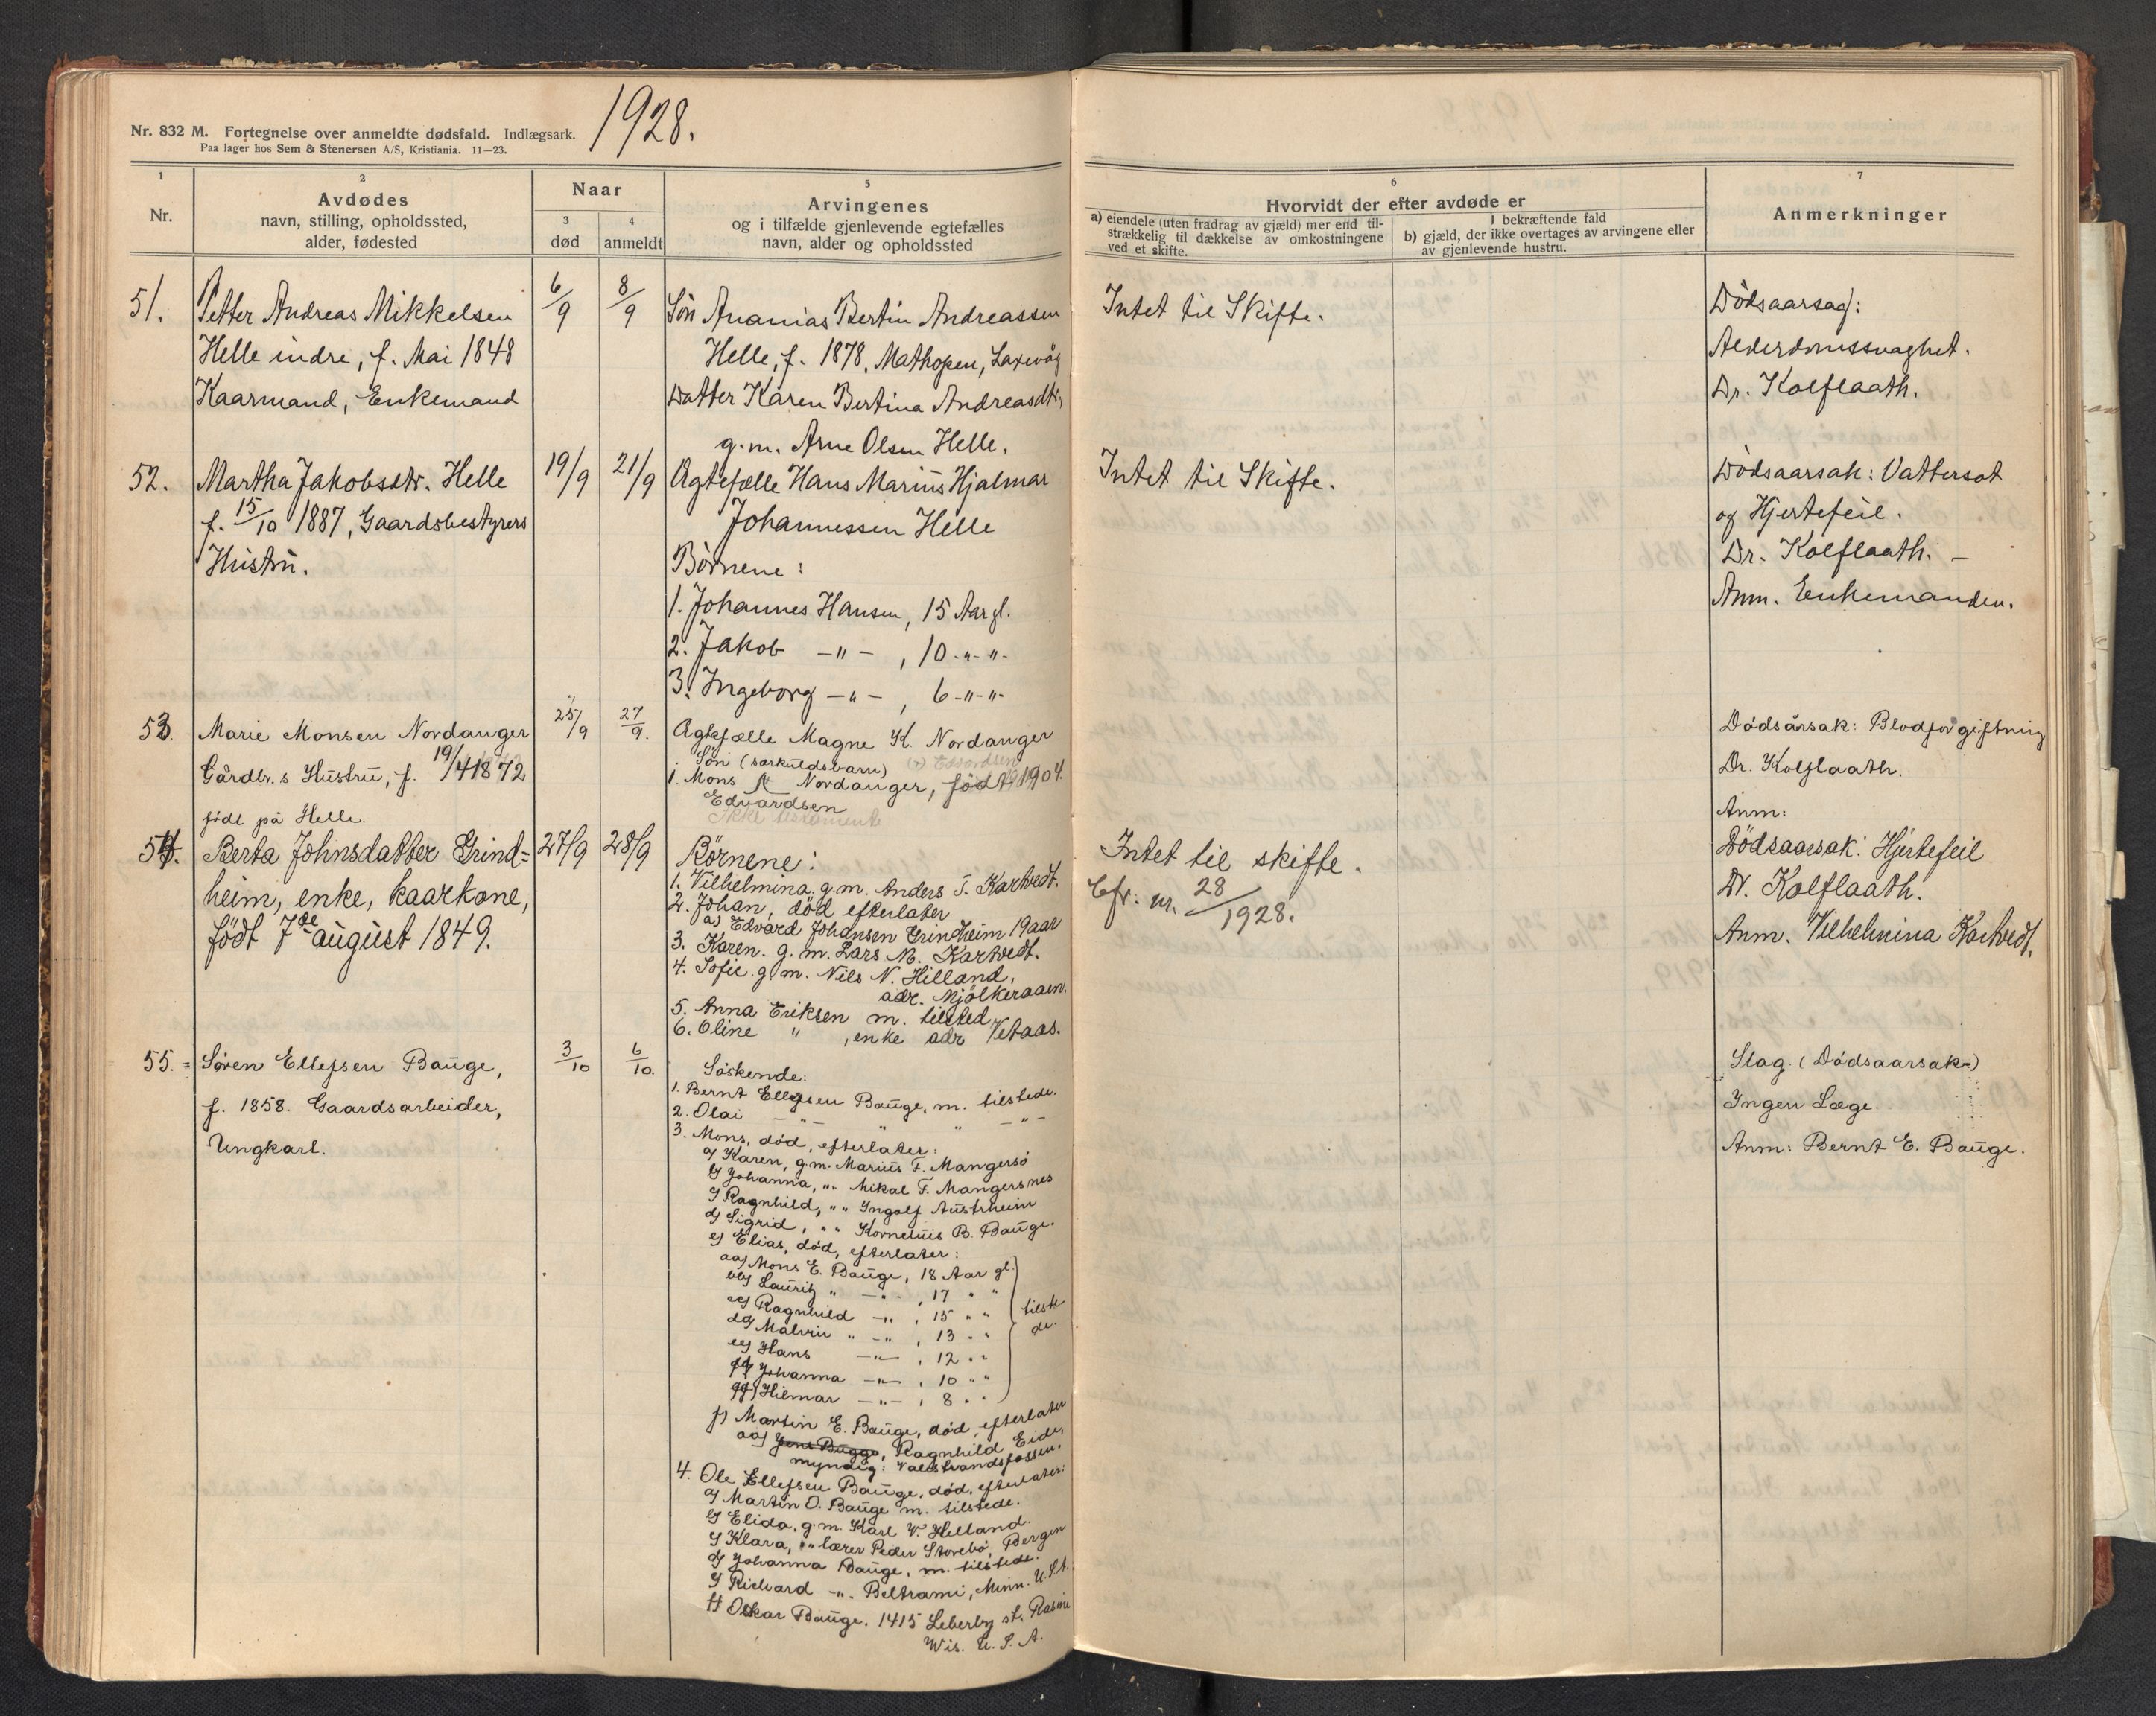 1928.
Nr. 832 M. Fortegnelse over anmeldte dødsfald. Indlægsark.
Paa lager hos Sem & Stenersen A/S, Kristiania. 11—23.
1
Nr.
2
Avdødes
navn, stilling, opholdssted,
alder, fødested
Naar
3
død
4
anmeldt
5
Arvingenes
og i tilfælde gjenlevende egtefælles
navn, alder og opholdssted
6
Hvorvidt der efter avdøde er
a) eiendele (uten fradrag av gjæld) mer end til-
strækkelig til dækkelse av omkostningene
ved et skifte.
I bekræftende fald
b) gjæld, der ikke overtages av arvingene eller
av gjenlevende hustru.
7
Anmerkninger
51.
Petter Andreas Mikkelsen
Helle indre, f. Mai 1848
Kaarmand, Enkemand
6/9
8/9
Søn Ananias Bertin Andreassen
Helle, f. 1878, Mathopen, Laxevåg
Datter Karen Bertina Andreasdtr,
g.m. Arne Olsen Helle.
Intet til Skifte.
Dödsaarsag:
Alderdomssvaghet.
Dr. Kolflaath.
52.
Martha Jakobsdtr. Helle
f. 15/10 1887, Gaardsbestyrers
Hustru.
19/9
21/9
Ægtefælle Hans Marius Hjalmar
Johannessen Helle
Børnene:
1. Johannes Hansen, 15 Aar gl.
2. Jakob -"- , 10 -"-"-
3. Ingeborg -"- , 6 -"-"-
Intet til Skifte.
Dödsaarsak: Vattersot
og Hjertefeil.
Dr. Kolflaath. —
Anm. Enkemanden.
53.
Marie Monsen Nordanger
Gårdbr.s Hustru, f. 19/4 1872
födt på Helle.
25/9
27/9.
Ægtefælle Magne K. Nordanger
Søn (særkuldsbarn) Edvardsen
1. Mons Nordanger, född 1904.
Edvardsen
Ikke testamente
Dödsårsak: Blodforgiftning
Dr. Kolflaath.
Anm:
54.
Berta Johnsdatter Grind=
heim, enke, kaarkone,
født 7de august 1849.
27/9
28/9
Börnene:
1. Vilhelmina. g.m. Anders T. Kartvedt.
2. Johan, död efterlater
a) Edvard Johansen Grindheim 19 aar
3. Karen. g.m. Lars M. Kartvedt.
4. Sofie. g.m. Nils N. Hilland,
adr. Mjölkeraaen.
5. Anna Eriksen m. tilsted
6. Oline " , enke adr Vetaas.
Intet til skifte.
Cfr. nr. 28/1928.
Dödsaarsak: Hjertefeil
Dr. Kolflaath.
Anm. Vilhelmina Kartvedt.
55.
Søren Ellefsen Bauge,
f. 1858. Gaardsarbeider,
Ungkarl.
3/10
6/10.
Søskende:
1. Bernt Ellefsen Bauge, m. tilstede.
2. Olai -"- " -"-
3. Mons, död, efterlater:
a) Karen, g.m. Marius F. Mangersö
b) Johanna, "" Mikal F. Mangersnes
c) Ragnhild, "" Ingolf Austrheim
d) Sigrid, "" Kornelius B. Bauge.
e) Elias, död, efterlater:
aa) Mons E. Bauge, 18 Aar gl.
bb) Lauritz " -"- , 17 " "
cc) Ragnhild -"- , 15 " "
dd) Malvin " -"- , 13 " "
ee) Hans -"- , 12 " "
ff) Johanna -"- , 10 " "
gg) Hilmar -"- , 8 " "
tilste
de.
f) Martin E. Bauge, død, efterlater
aa) Jens Bugge, Ragnhild Eide,
myndig: Valestrandsfossen.
4. Ole Ellefsen Bauge, død, efterlater:
a) Martin O. Bauge m. tilstede.
b) Elida, g.m. Karl V. Helland.
c) Klara, "" lærer Peder Storebö, Bergen
d) Johanna Bauge, m. tilstede.
e) Richard -"- Beltrami, Minn. U.S.A.
f) Oskar Bauge. 1415 Leberby st. Rasine
Wis. U.S.A.
Slag. (Dödsaarsak)
Ingen Læge.
Anm: Bernt E. Bauge.